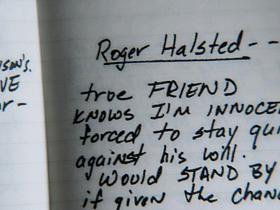 ISON'S.
VE
or-
Roger Halsted--
true FRIEND
KNOWS I'M INNOCE
forced to stay qui
against his will.
WOULD STAND BY
if given the chan